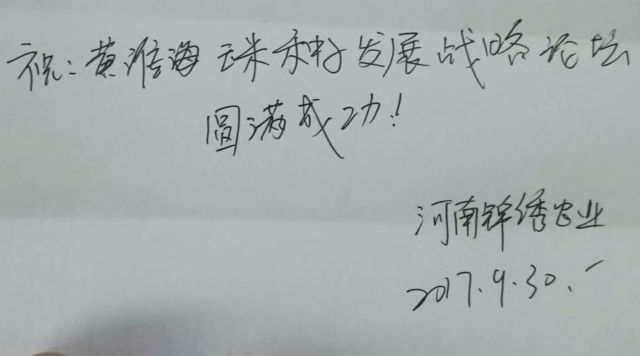 祝:黄淮海玉米种子发展战略论坛
圆满成功!
河南锦绣农业
2017.9.30.